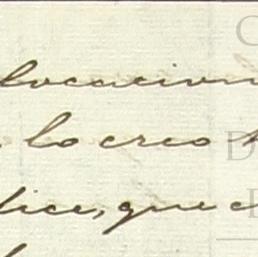 locacion
lo creo
dice, que